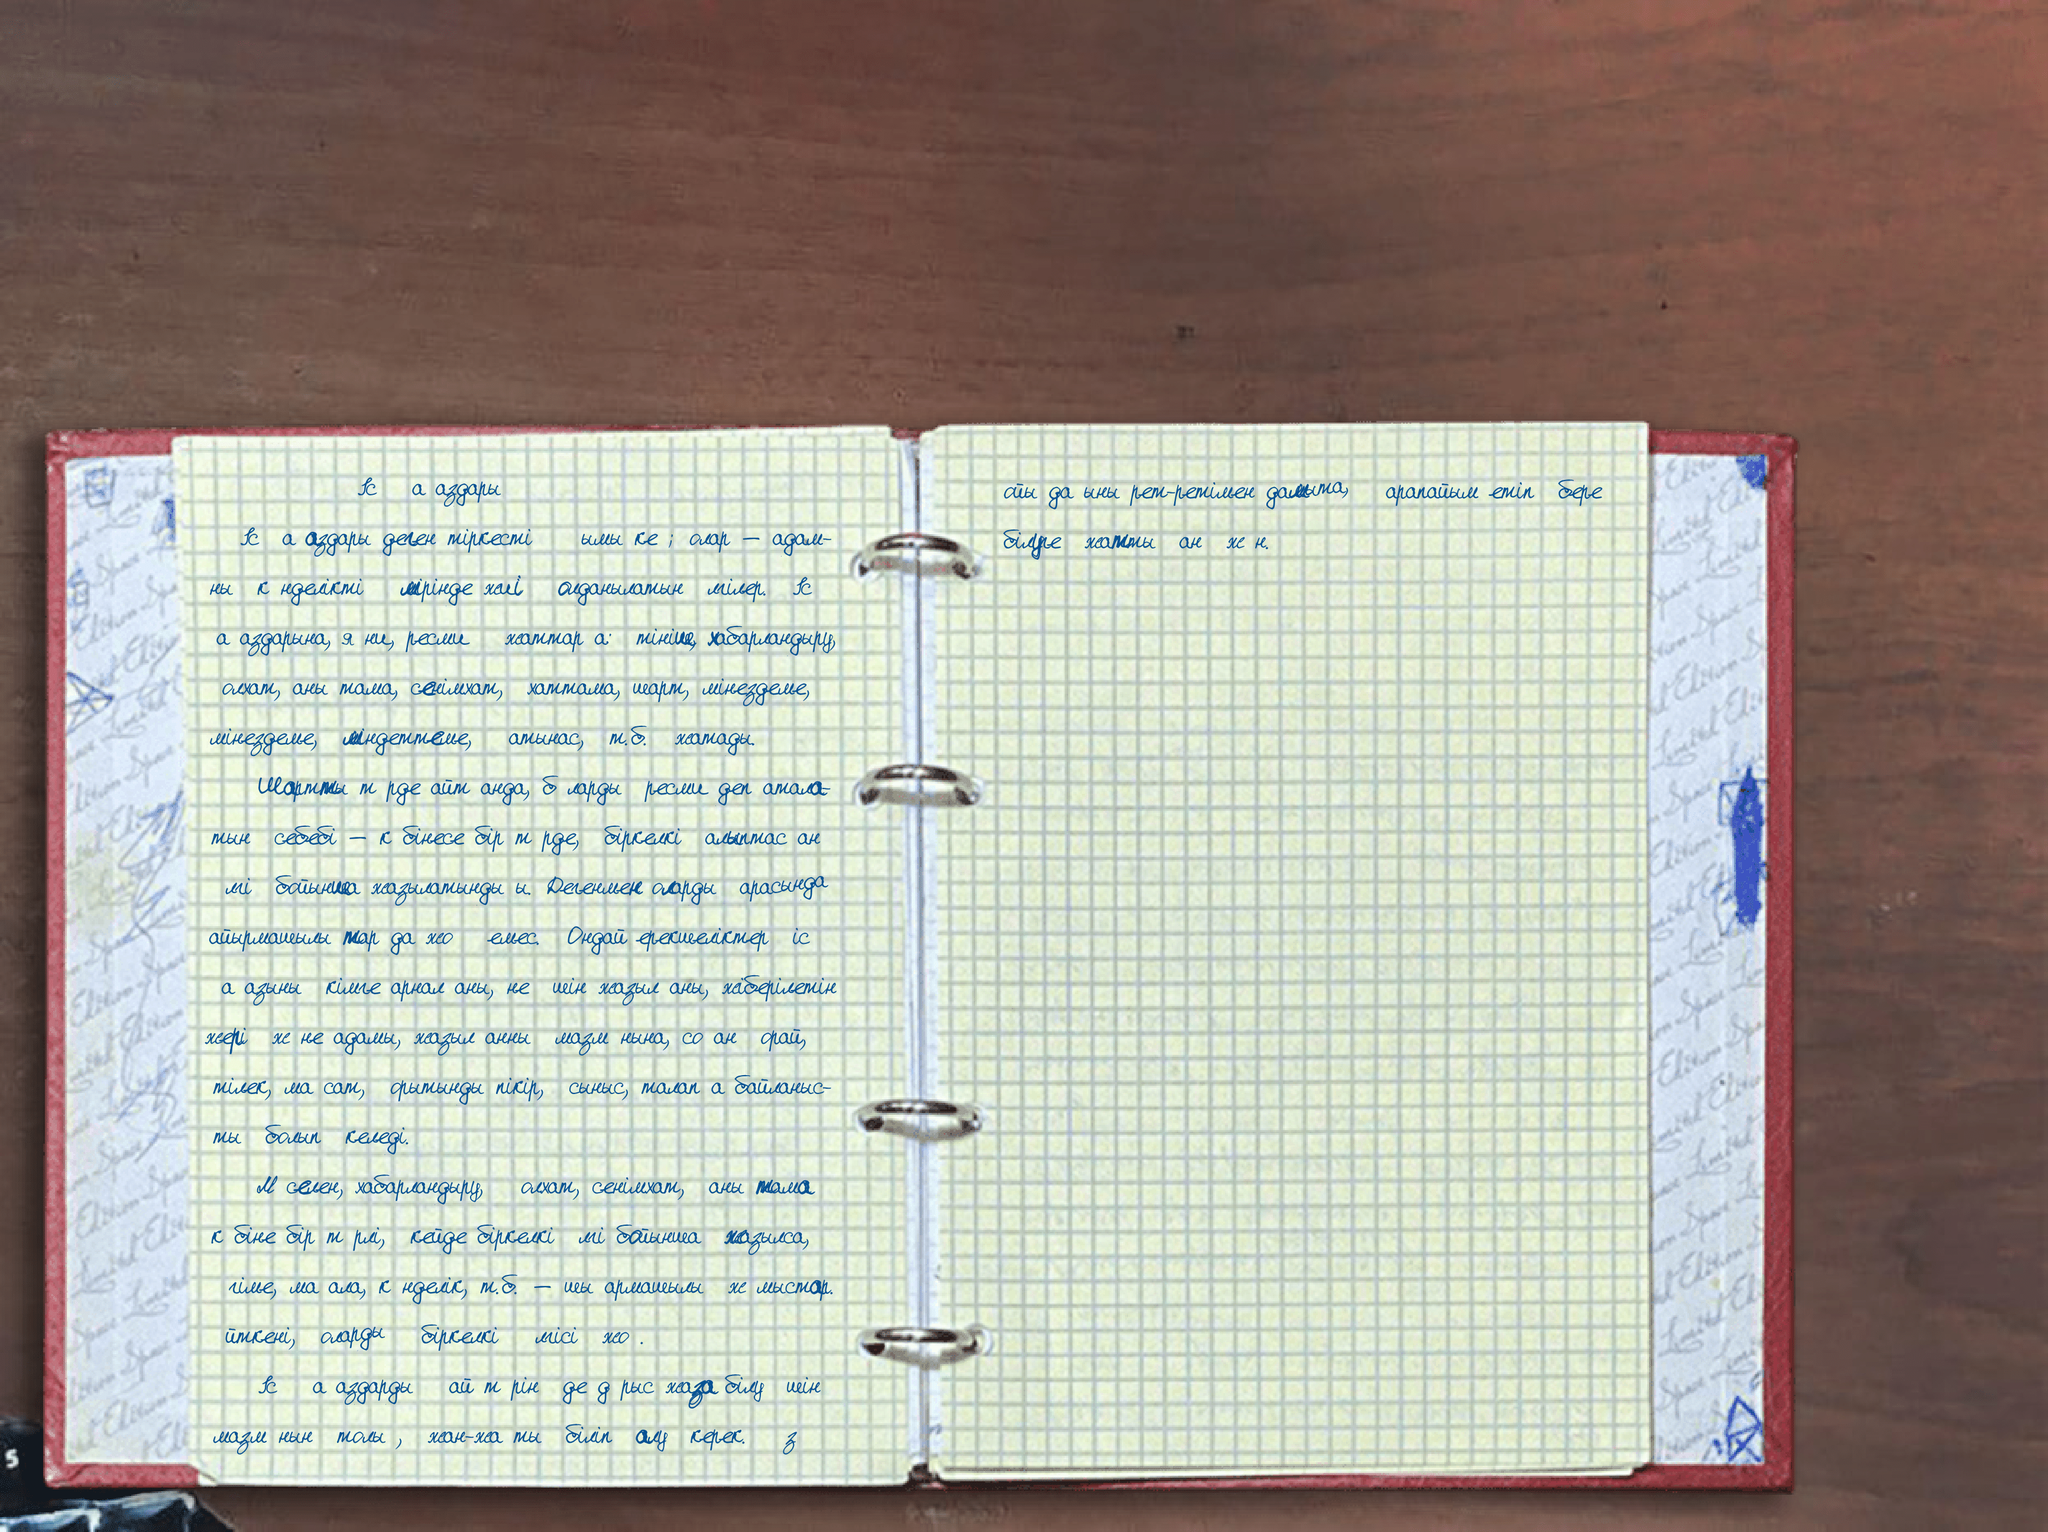 Іс а аздары
Іс а аздары деген тіркесті ымы ке ; олар — адам-
ны к нделікті мірінде жиі олданылатын мілер. Іс
а аздарына, я ни, ресми жаттар а: тініш, хабарландыру,
олхат, аны тама, сенімхат, хаттама, шарт, мінездеме,
мінездеме, міндеттеме, атынас, т.б. жатады.
Шартты т рде айт анда, б ларды ресми деп атала-
тын себебі — к бінесе бір т рде, біркелкі алыптас ан
лгі бойынша жазылатынды ы. Дегенмен оларды арасында
айырмашылы тар да жо емес. Ондай ерекшеліктер іс
а азыны кімге арнал аны, не шін жазыл аны, жіберілетін
жері ж не адамы, жазыл анны мазм нына, со ан орай,
тілек, ма сат, орытынды пікір, сыныс, талап а байланыс-
ты болып келеді.
М селен, хабарландыру, олхат, сенімхат, аны тама
к біне бір т рлі, кейде біркелкі лгі бойынша жазылса,
гіме, ма ала, к нделік, т.б. — шы армашылы ж мыстар.
йткені, оларды біркелкі лгісі жо .
Іс а аздарды ай т рін де д рыс жаза білу шін
мазм нын толы , жан-жа ты біліп алу керек. з
ойы да ыны рет-ретімен дамыта, арапайым етіп бере
білуге жатты ан ж н.